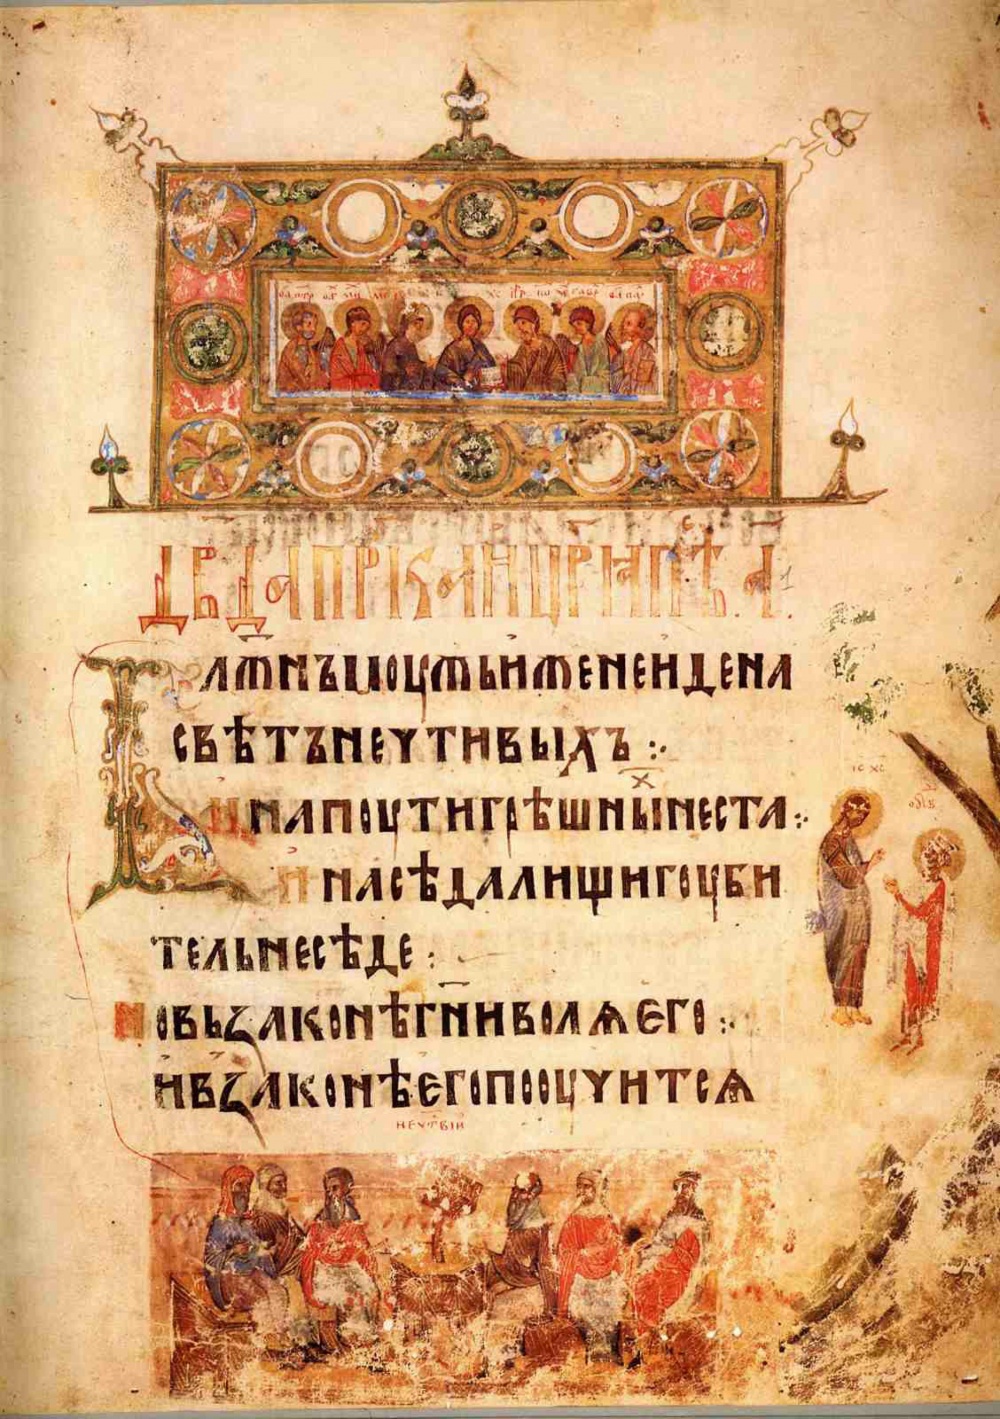 ДВДА ПРКА И ЦРѦ ПѢ. А.
БЛЖНЪ МОУЖЬ ИЖЕ НЕ ИДЕ НА
СВѢТЪ НЕЧТИВЫХЪ :·
И НА ПОУТИ ГРѢШНЫХ НЕ СТА :·
И НА СѢДАЛИЩИ ГОУБИ
ТЕЛЬ НЕ СѢДЕ :
НО ВЬ ЗАКОНѢ ГНИ ВОЛѦ ЕГО :·
И В ЗАКОНѢ ЕГО ПООУЧИТСѦ
IC XC
НЕЧТВИИ